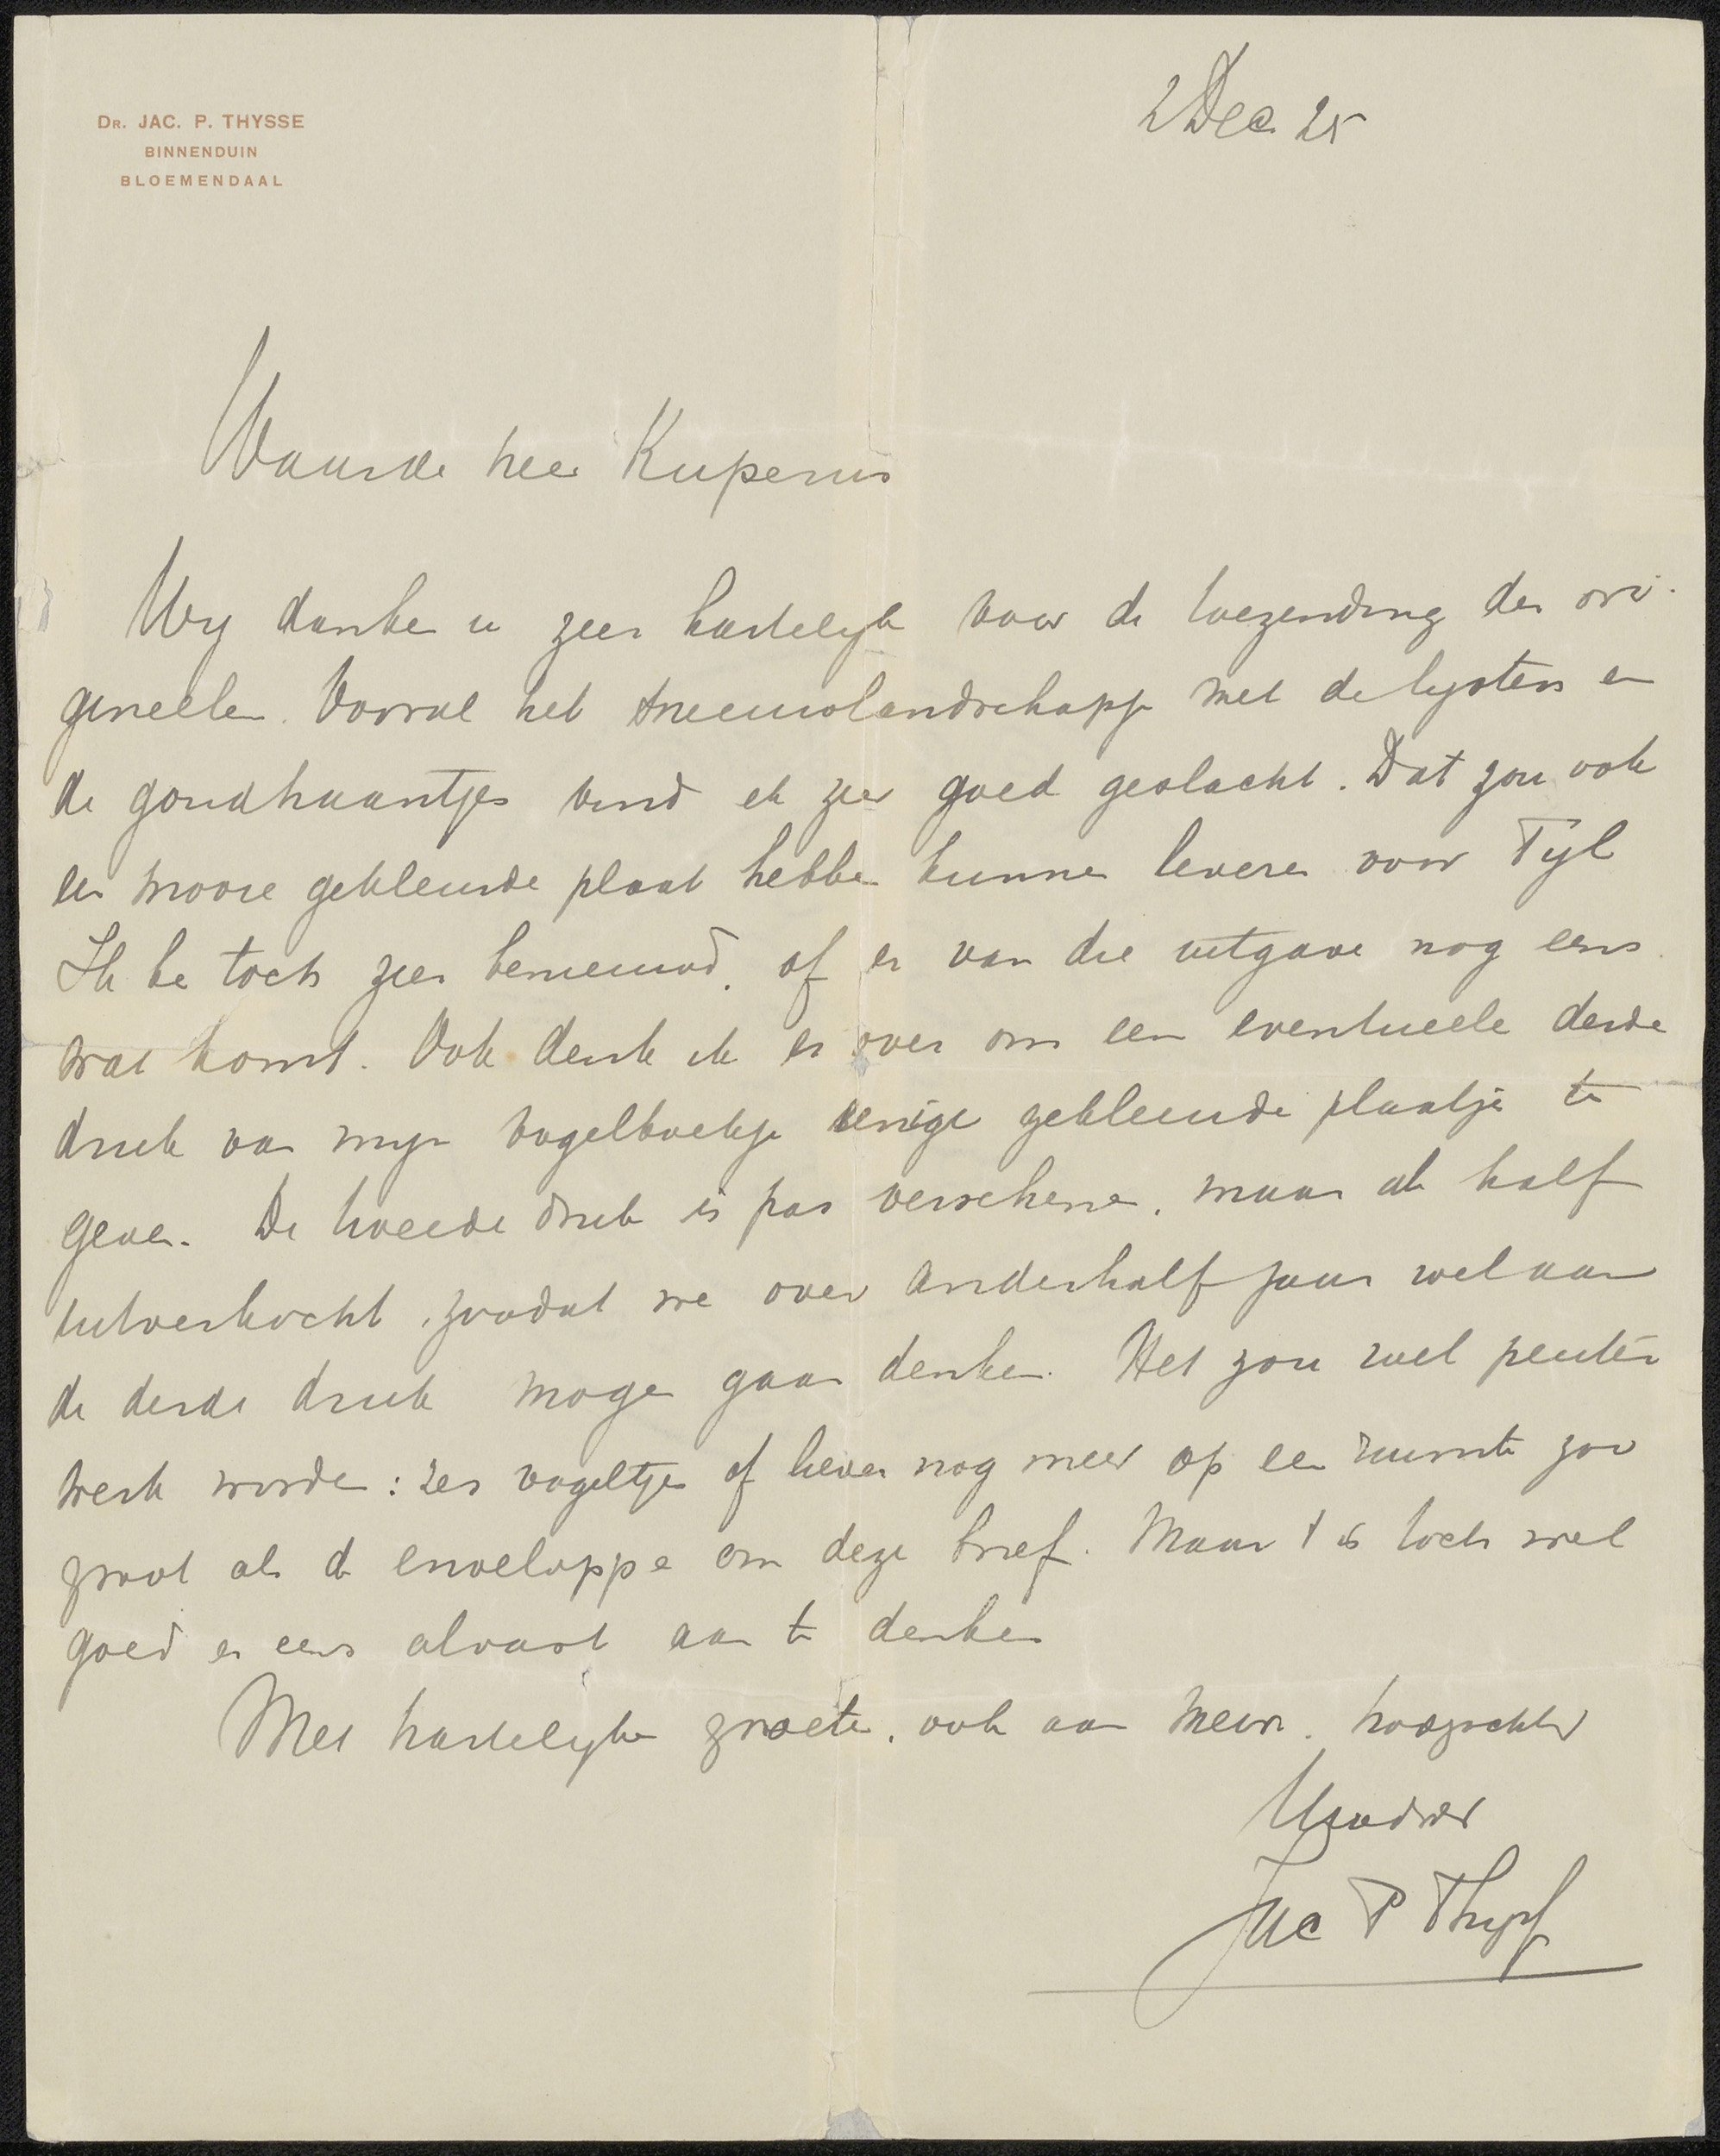 DR. JAC. P. THYSSE
BINNENDUIN
BLOEMENDAAL
2 Dec 25
Waarde heer Kuperus
Wy danken u zeer hartelyk voor de toezending der ori-
gineelen. Vooral het sneeuwlandschapje met de lysters en
de goudhaantjes vind ik zeer goed geslacht. Dat zou ook
een mooie gekleurde plaat hebben kunnen leveren voor Tyl
Ik ben toch zeer benieuwd, of er van die uitgave nog eens
wat komt. Ook denk ik er over om een eventueele derde
druk van myn vogelboekje eenige gekleurde plaatjes te
geven. De tweede druk is pas verschenen, maar al half
uitverkocht, zoodat we over anderhalf jaar wel aan
de derde druk mogen gaan denken. Het zou wel peuter
werk worden: zes vogeltjes of liever nog meer op een ruimte zoo
groot als de enveloppe om deze brief. Maar 't is toch wel
goed er eens alvast aan te denken
Met hartelyke groeten, ook aan Mevr. hoogachtend
Uwdw
Jac P Thysse